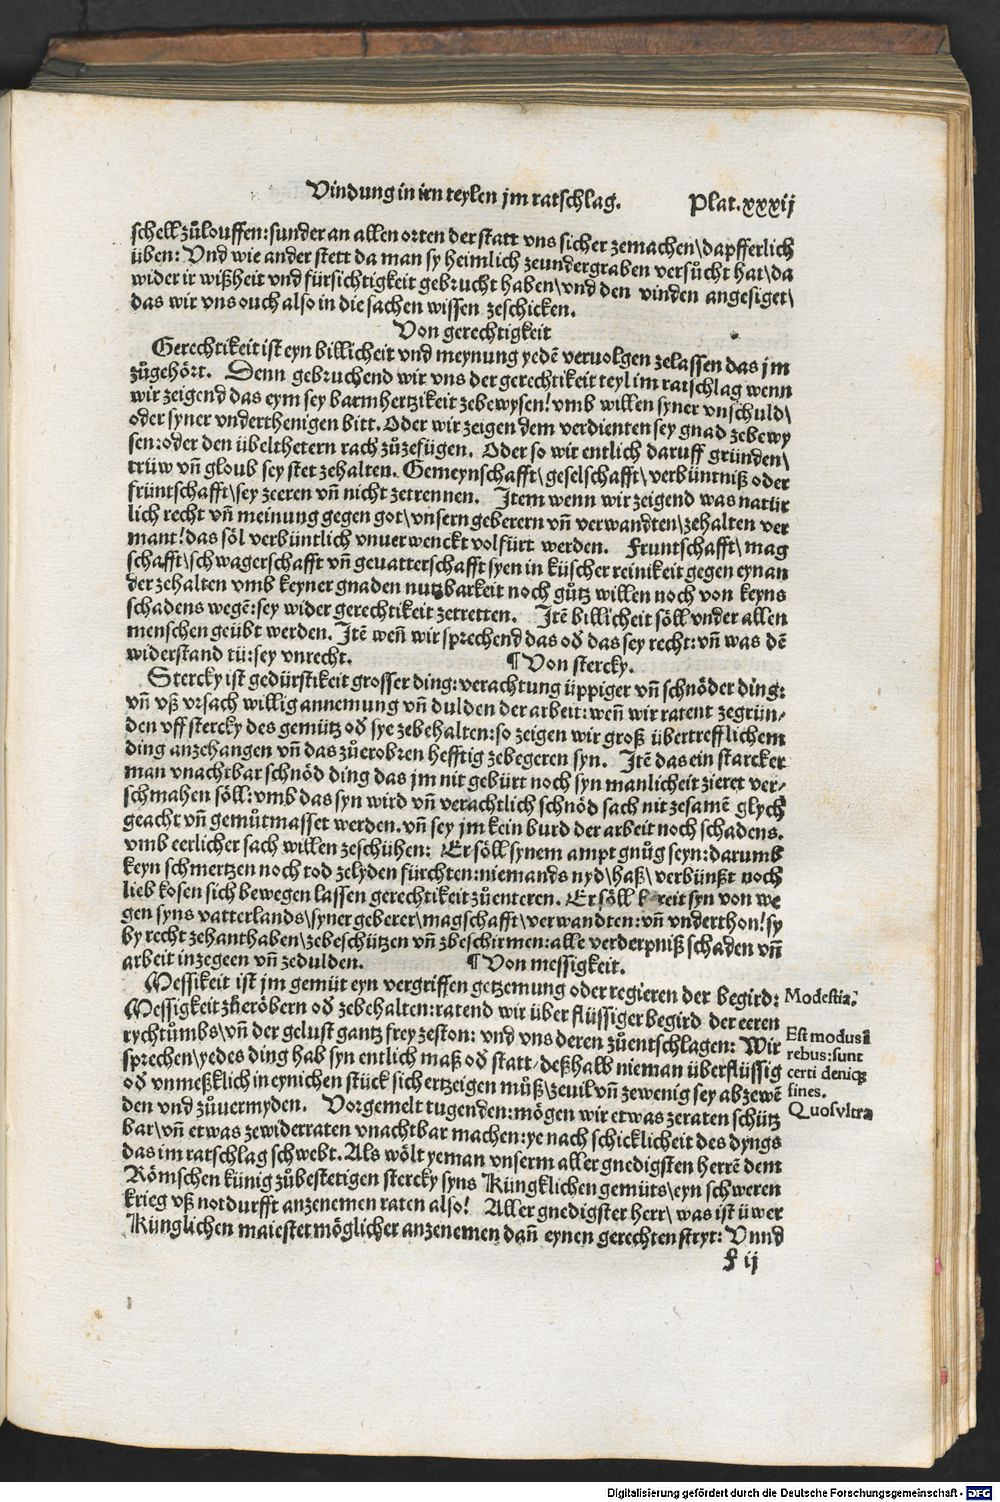 Vindung in irn teylen jm ratschlag. Plat. xxxij
schell zůlouffen: sunder an allen orten der statt vns sicher zemachen\ dapfferlich
üben: Vnd wie ander stett da man sy heimlich zeundergraben versůcht hat\ da
wider ir wißheit vnd fürsichtigkeit gebrucht haben\ vnd den vinden angesiget\
das wir vns ouch also in die sachen wissen zeschicken.
Von gerechtigkeit
Gerechtikeit ist eyn billicheit vnd meynung yedē veruolgen zelassen das jm
zůgehört. Denn gebruchend wir vns der gerechtikeit teyl im ratschlag wenn
wir zeigend das eym sey barmhertzikeit zebewysen! vmb willen syner vnschuld\
oder syner vnderthenigen bitt. Oder wir zeigen dem verdienten sey gnad zebewy
sen: oder den übelthetern rach zůzefügen. Oder so wir entlich daruff gründen\
trüw vñ gloub sey stet zehalten. Gemeynschafft\ geselschafft\ verbüntniß oder
früntschafft\ sey zeeren vñ nicht zetrennen. Item wenn wir zeigend was natür
lich recht vñ meinung gegen got\ vnsern geberern vñ verwandten\ zehalten ver
mant! das söl verbüntlich vnuerwenckt volfürt werden. Fruntschafft\ mag
schafft\ schwagerschafft vñ geuatterschafft syen in küscher reinikeit gegen eynan
der zehalten vmb keyner gnaden nutzbarkeit noch gůtz willen noch von keyns
schadens wegē: sey wider gerechtikeit zetretten. Itē billicheit söll vnder allen
menschen geübt werden. Itē weñ wir sprechend das oď das sey recht: vñ was dē
widerstand tü: sey vnrecht. ¶ Von stercky.
Stercky ist gedürstikeit grosser ding: verachtung üppiger vñ schnöder ding:
vñ vß vrsach willig annemung vñ dulden der arbeit: weñ wir ratent zegrün⸗
den vff stercky des gemütz oď sye zebehalten: so zeigen wir groß übertrefflichem
ding anzehangen vñ das zůerobren hefftig zebegeren syn. Itē das ein starcker
man vnachtbar schnöd ding das jm nit gebürt noch syn manlicheit zieret ver⸗
schmahen söll: vmb das syn wird vñ verachtlich schnöd sach nit zesamē glych
geacht vñ gemůtmasset werden. vñ sey jm kein burd der arbeit noch schadens.
vmb eerlicher sach willen zeschühen: Er söll synem ampt gnůg seyn: darumb
keyn schmertzen noch tod zelyden fürchten: niemands nyd\ haß\ verbünßt noch
lieb kosen sich bewegen lassen gerechtikeit zůenteren. Er söll bereit syn von we
gen syns vatterlands\ syner geberer\ magschafft\ verwandten: vñ vnderthon! sy
by recht zehanthaben\ zebeschützen vñ zbeschirmen: alle verderpniß schaden vñ
arbeit inzegeen vñ zedulden. ¶ Von messigkeit.
Messikeit ist jm gemüt eyn vergriffen getzemung oder regieren der begird:
Messigkeit zůeröbern oď zebehalten: ratend wir über flüssiger begird der eeren
rychtůmbs\ vñ der gelust gantz frey zeston: vnd vns deren zůentschlagen: Wir
sprechen\ yedes ding hab syn entlich maß oď statt⸗ deßhalb nieman überflüssig
oď vnmeßklich in eynichen stück sich ertzeigen můß\ zeuil vñ zewenig sey abzewē
den vnd zůuermyden. Vorgemelt tugenden: mögen wir etwas zeraten schütz
bar\ vñ etwas zewiderraten vnachtbar machen: ye nach schicklicheit des dyngs
das im ratschlag schwebt. Als wölt yeman vnserm aller gnedigsten herrē dem
Römschen künig zůbestetigen stercky syns Küngklichen gemüts\ eyn schweren
krieg vß notdurfft anzenemen raten also! Aller gnedigster herr\ was ist üwer
Künglichen maiestet möglicher anzenemen dañ eynen gerechten stryt: Vnnd
f ij
Modestia.
Est modus ī
rebus: sunt
certi denicꝫ
fines.
Quos vltra
Digitalisierung gefördert durch die Deutsche Forschungsgemeinschaft - DFG